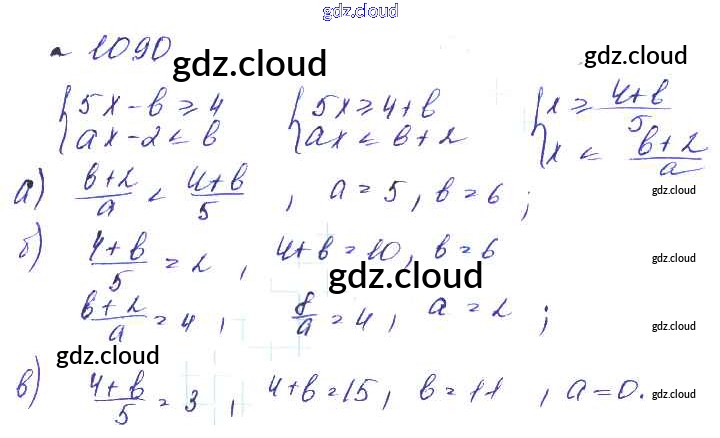 gdz.cloud
№ 1090
gdz.cloud gdz.cloud
{ 5x - b ≥ 4 { 5x ≥ 4 + b { x ≥ (4+b)/5
{ ax - 2 ≤ b { ax ≤ b + 2 { x ≤ (b+2)/a
а) (b+2)/a < (4+b)/5 , a = 5, b = 6 ; gdz.cloud
б) (4+b)/5 = 2 , 4+b = 10, b = 6 gdz.cloud
gdz.cloud
(b+2)/a = 4 , 8/a = 4 , a = 2 ; gdz.cloud
gdz.cloud
в) (4+b)/5 = 3 , 4+b = 15, b = 11 , a = 0. gdz.cloud